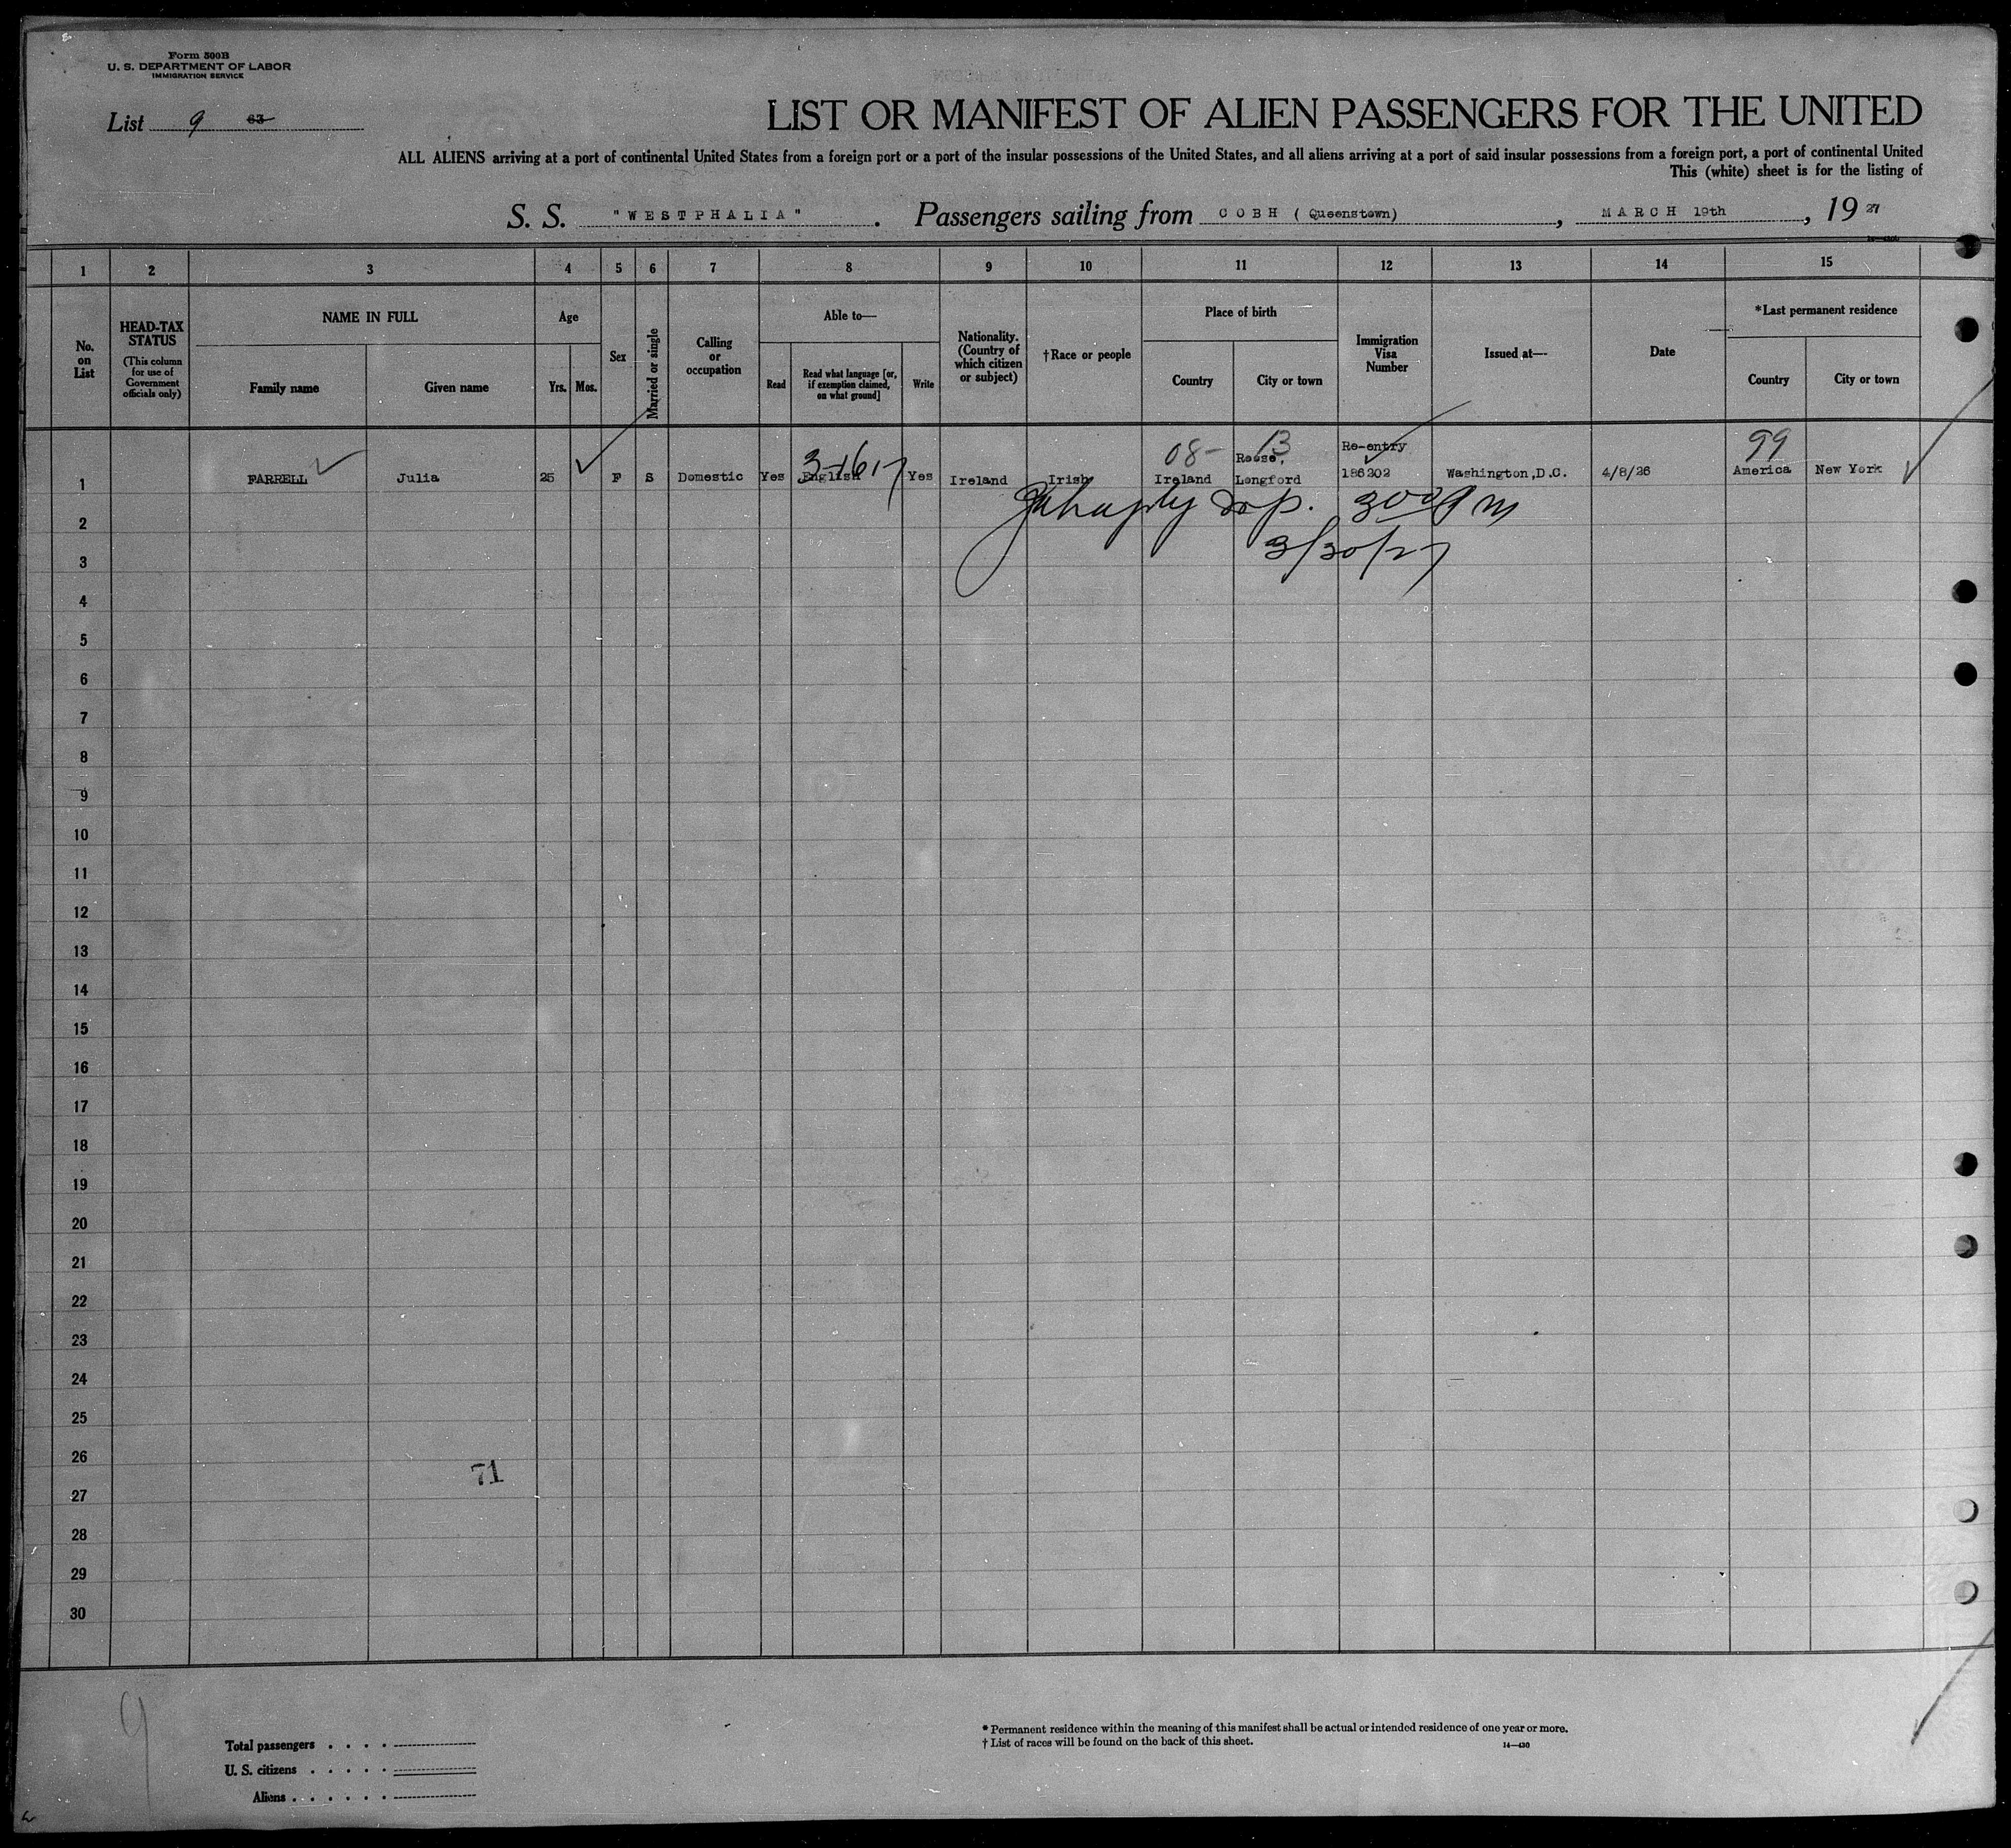 Form 500B
U. S. DEPARTMENT OF LABOR
IMMIGRATION SERVICE
List 9 63
LIST OR MANIFEST OF ALIEN PASSENGERS FOR THE UNITED
ALL ALIENS arriving at a port of continental United States from a foreign port or a port of the insular possessions of the United States, and all aliens arriving at a port of said insular possessions from a foreign port, a port of continental United
This (white) sheet is for the listing of
S. S. "WESTPHALIA". Passengers sailing from COBH (Queenstown), MARCH 19th, 19 27
1 2 3 4 5 6 7 8 9 10 11 12 13 14 15
No. on List
HEAD-TAX STATUS
(This column for use of Government officials only)
NAME IN FULL
Family name
Given name
Age
Yrs. Mos.
Sex
Married or single
Calling or occupation
Able to—
Read
Read what language [or, if exemption claimed, on what ground]
Write
Nationality. (Country of which citizen or subject)
†Race or people
Place of birth
Country
City or town
Immigration Visa Number
Issued at—
Date
*Last permanent residence
Country
City or town
08- B 99
Re-entry
1 FARRELL Julia 25 F S Domestic Yes English Yes Ireland Irish Ireland Longford 186202 Washington,D.C. 4/8/26 America New York
2
3/30/27
3
4
5
6
7
8
9
10
11
12
13
14
15
16
17
18
19
20
21
22
23
24
25
26
71
27
28
29
30
9
Total passengers . . . .
U. S. citizens . . . . .
Aliens . . . . . .
* Permanent residence within the meaning of this manifest shall be actual or intended residence of one year or more.
† List of races will be found on the back of this sheet.
14—430